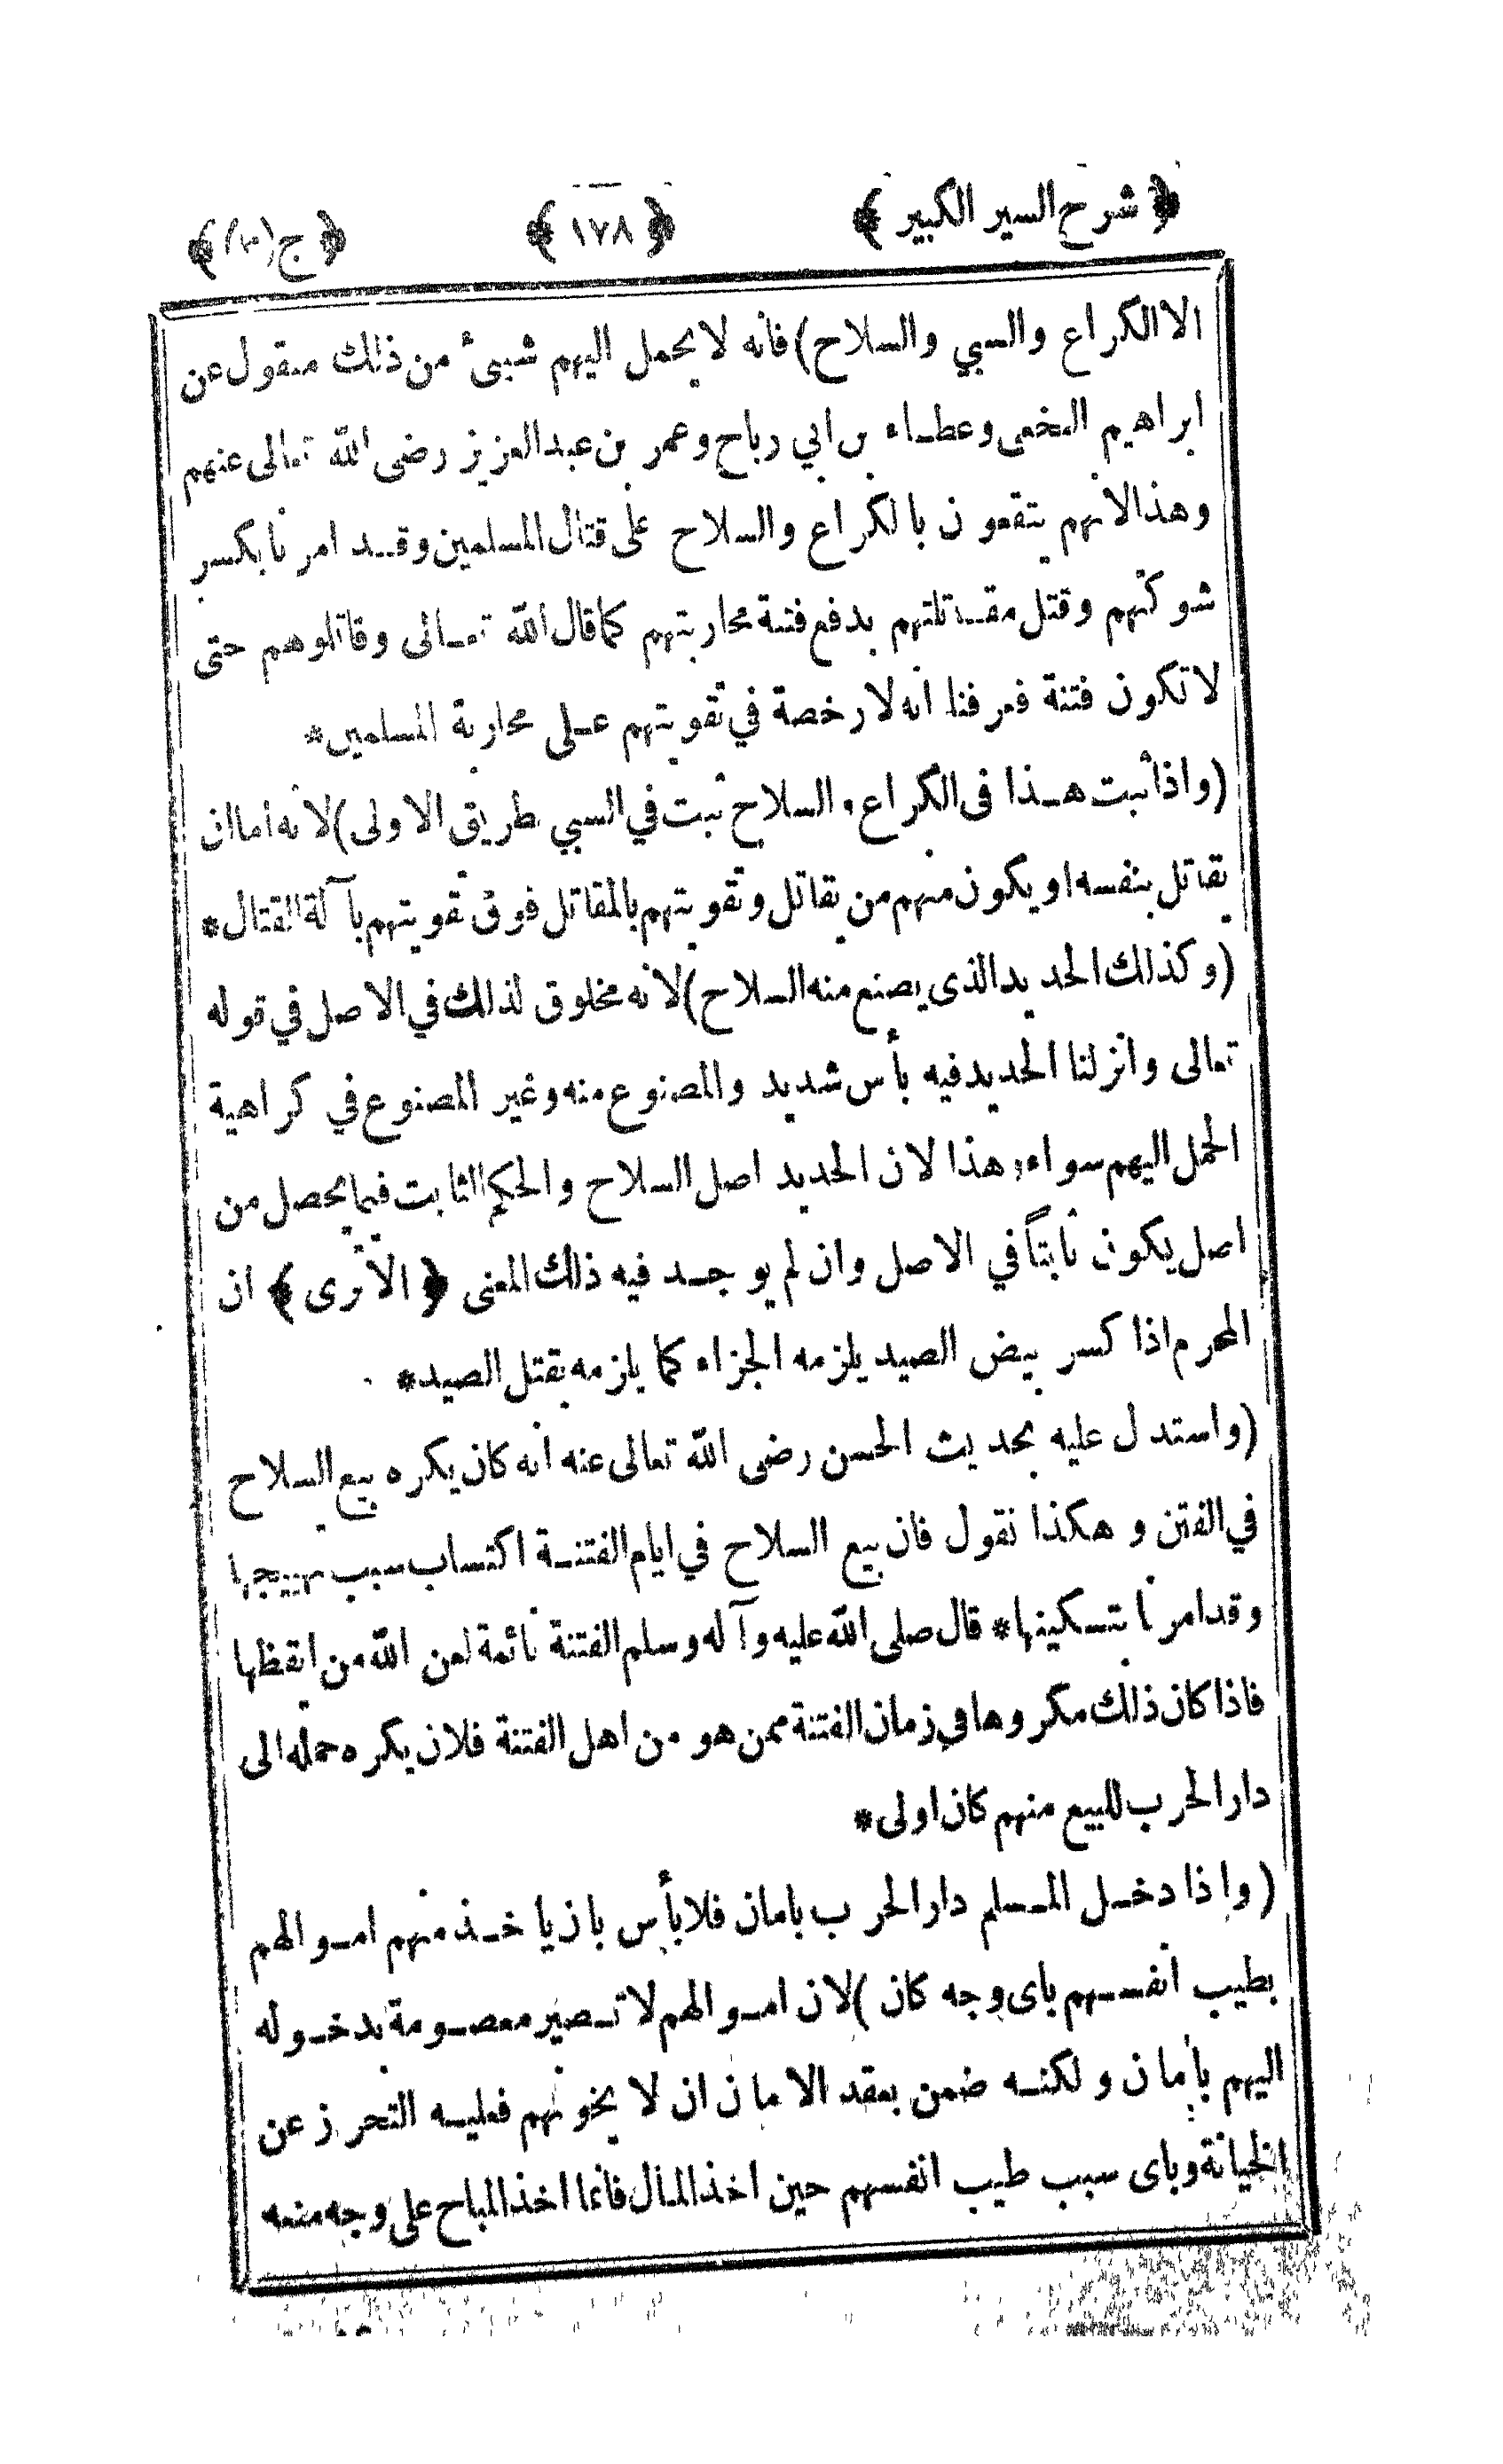 ﴿ شرح السير الكبير ﴾ ﴿ ١٧٨ ﴾ ﴿ ج (٣) ﴾
الا الكراع والسبي والسلاح) فانه لا يحمل اليهم شيئ من ذلك منقول عن
ابراهيم النخعى وعطاء بن ابي رباح وعمر بن عبد العزيز رضى الله تعالى عنهم
وهذا لانهم يتقوون بالكراع والسلاح على قتال المسلمين وقد امرنا بكسر
شوكتهم وقتل مقاتلتهم بدفع فتنة محاربتهم كما قال الله تعالى وقاتلوهم حتى
لا تكون فتنة فعرفنا انه لا رخصة في تقويتهم على محاربة المسلمين*
(واذا ثبت هذا فى الكراع والسلاح ثبت في السبي بطريق الاولى) لانه اما ان
يقاتل بنفسه او يكون منهم من يقاتل وتقويتهم بالمقاتل فوق تقويتهم بآلة القتال*
(وكذلك الحديد الذى يصنع منه السلاح) لانه مخلوق لذلك في الاصل في قوله
تعالى وانزلنا الحديد فيه بأس شديد والمصنوع منه وغير المصنوع في كراهية
الحمل اليهم سواء وهذا لان الحديد اصل السلاح والحكم الثابت فيما يحصل من
اصل يكون ثابتاً في الاصل وان لم يوجد فيه ذلك المعنى ﴿ الاترى ﴾ ان
المحرم اذا كسر بيض الصيد يلزمه الجزاء كما يلزمه بقتل الصيد*
(واستدل عليه بحديث الحسن رضى الله تعالى عنه انه كان يكره بيع السلاح
في الفتن و هكذا نقول فان بيع السلاح في ايام الفتنة اكتساب سبب تهييجها
وقد امرنا بتسكينها* قال صلى الله عليه وآله وسلم الفتنة نائمة لعن الله من ايقظها
فاذا كان ذلك مكروها في زمان الفتنة ممن هو من اهل الفتنة فلان يكره حمله الى
دار الحرب للبيع منهم كان اولى*
(وإذا دخل المسلم دار الحرب بامان فلا بأس بان يأخذ منهم اموالهم
بطيب انفسهم باى وجه كان )لان اموالهم لا تصير معصومة بدخوله
اليهم بأمان و لكنه ضمن بعقد الامان ان لا يخونهم فعليه التحرز عن
الخيانة وباى سبب طيب انفسهم حين اخذ المال فانما اخذ المباح على وجه منعه